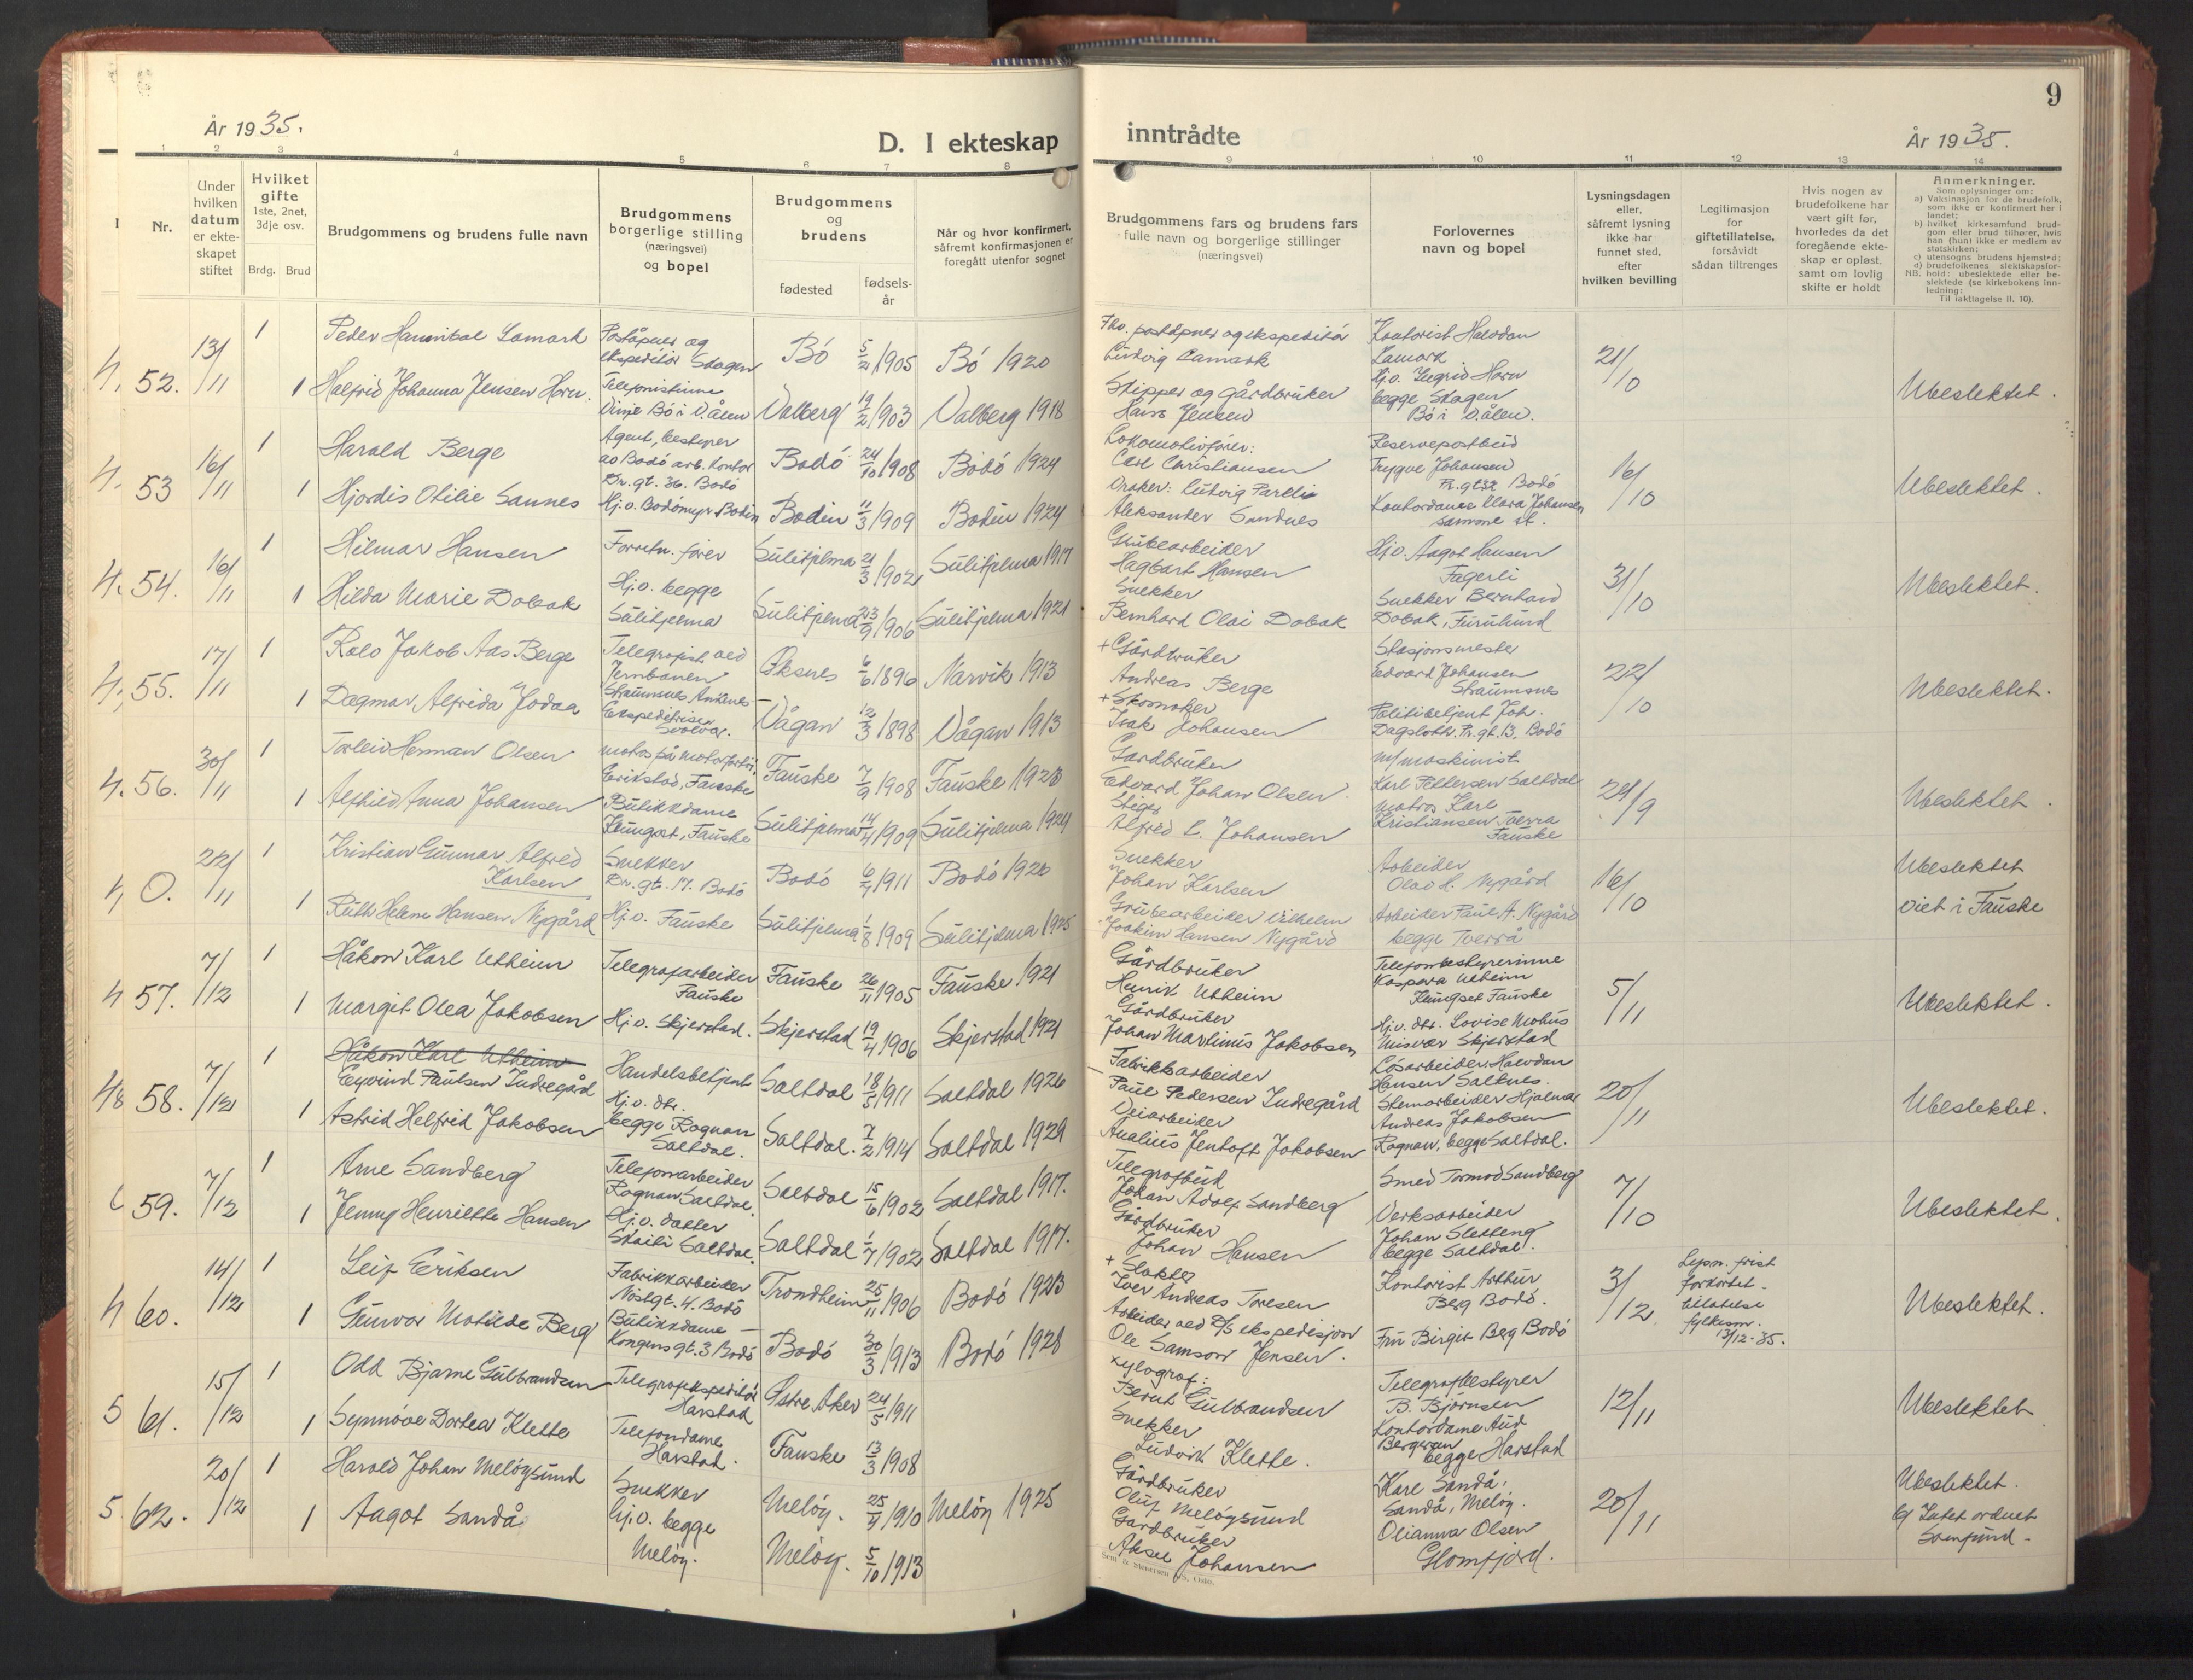 År 1935.
D. I ekteskap
1 2 3 4 5 6 7 8
Nr.
Under hvilken datum er ekteskapet stiftet
Hvilket gifte 1ste, 2net, 3dje osv.
Brdg. Brud
Brudgommens og brudens fulle navn
Brudgommens borgerlige stilling (næringsvei) og bopel
Brudgommens og brudens
fødested
fødselsår
Når og hvor konfirmert, såfremt konfirmasjonen er foregått utenfor sognet
52. 13/11 1 Peder Hannibal Lamark
Poståpner og ekspeditør Skagen
Bö 5/2 1905 Bö 1920
1 Halfrid Johanna Jensen Horn.
Telefonistinne Vinje Bö i V.ålen
Valberg 19/2 1903 Valberg 1918
53 16/11 1 Harald Berge
Agent, bestyrer av Bodö arb. kontor Dr. gt. 36. Bodö
Bodö 24/10 1908 Bodö 1924
1 Hjördis Otilie Sannes
Hj.v. Bodömyr Bodin
Bodin 11/3 1909 Bodin 1924
54. 16/11 1 Hilmar Hansen
Forretn. förer
Sulitjelma 21/3 1902 Sulitjelma 1917
1 Hilda Marie Dobak
Hj.v. begge Sulitjelma
Sulitjelma 23/9 1906 Sulitjelma 1921
55. 17/11 1 Rolv Jakob Aas Berge
Telegrafist ved Jernbanen
Øksnes 6/6 1896 Narvik 1913
1 Dagmar Alfrida Jodaa
Ekspeditrise Svolvær.
Vågan 12/3 1898 Vågan 1913
56. 30/11 1 Torleiv Herman Olsen
Matros på motorfartöi, Erikstad, Fauske
Fauske 7/9 1908 Fauske 1923
1 Alfhild Anna Johansen
Butikkdame Klungset, Fauske
Sulitjelma 14/4 1909 Sulitjelma 1924
0. 22/11 1 Kristian Gunnar Alfred Karlsen
Snekker Dr. gt. 17. Bodö
Bodö 6/4 1911 Bodö 1926
1 Ruth Helene Hansen Nygård
Hj.v. Fauske
Sulitjelma 1/8 1909 Sulitjelma 1925
57. 7/12 1 Håkon Karl Utheim
Telegrafarbeider Fauske
Fauske 26/11 1905 Fauske 1921
1 Margit Olea Jakobsen
Hj.v. Skjerstad.
Skjerstad 19/4 1906 Skjerstad 1921
58. 7/12 1 Håkon Karl Utheim
Eyvind Paulsen Indregård
Handelsbetjent
Saltdal 18/5 1911 Saltdal 1926
1 Astrid Helfrid Jakobsen
Hj.v. dtr. begge Rognan Saltdal.
Saltdal. 7/2 1914 Saltdal 1929
59. 7/12 1 Arne Sandberg
Telefonarbeider Rognan Saltdal.
Saltdal 15/6 1902 Saltdal 1917.
1 Jenny Henriette Hansen
Hj.v. datter Skaiti Saltdal.
Saltdal 1/7 1902 Saltdal 1917.
60. 14/12 1 Leif Eriksen
Fabrikkarbeider Nöstgt. 4. Bodö
Trondheim 25/11 1906 Bodö 1923
1 Gunvor Matilde Berg
Butikkdame Kongens gt. 3 Bodö
Bodö 30/3 1913 Bodö 1928
61. 15/12 1 Odd Bjarne Gulbrandsen
Telegrafekspeditör Harstad
Østre Aker 24/5 1911
1 Synnöve Dortea Klette
Telefondame Harstad.
Fauske 13/3 1908
62. 20/12 1 Harald Johan Melöysund
Snekker
Melöy. 25/4 1910 Melöy 1925
1 Aagot Sandå
hj.v. begge Melöy.
Melöy. 5/10 1913
inntrådte
9
År 1935.
9 10 11 12 13 14
Brudgommens fars og brudens fars fulle navn og borgerlige stillinger (næringsvei)
Forlovernes navn og bopel
Lysningsdagen eller, såfremt lysning ikke har funnet sted, efter hvilken bevilling
Legitimasjon for giftetillatelse, forsåvidt sådan tiltrenges
Hvis nogen av brudefolkene har vært gift før, hvorledes da det foregående ekteskap er opløst, samt om lovlig skifte er holdt
Anmerkninger.
Som oplysninger om:
a) Vaksinasjon for de brudefolk, som ikke er konfirmert her i landet;
b) hvilket kirkesamfund brudgom eller brud tilhører, hvis han (hun) ikke er medlem av statskirken;
c) utensogns brudens hjemsted;
d) brudefolkenes slektskapsforhold: ubeslektede eller beslektede (se kirkebokens innledning:
NB. Til iakttagelse II. 10).
Fhv. poståpner og ekspeditör Ludvig Lamark
Kontorist Halvdan Lamark
Hj.v. Ingrid Horn
begge Skagen Bö i V.ålen.
21/10
Skipper og gårdbruker Hans Jensen
Ubeslektet.
Lokomotivförer: Carl Christiansen
Reservepostbud Trygve Johansen
16/10
Aleksander Sandnes
Kontordame Clara Johansen samme st.
Ubeslektet.
Grubearbeider Hagbart Hansen
Hj.v. Aagot Hansen Fagerli
31/10
Snekker Bernhard Olai Dobak
Snekker Bernhard Dobak, Furulund
Ubeslektet.
+ Gårdbruker Andreas Berge
Stasjonsmester Edvard Johansen Straumsnes
22/10
+ Skomaker Isak Johansen
Politibetjent Joh. Dagsloth. Pr. gt. 13. Bodö
Ubeslektet.
Gårdbruker Edvard Johan Olsen
M/maskinist Karl Pettersen Saltdal
29/9
Stiger Alfred L. Johansen
Matros Karl Kristiansen Tverra Fauske
Ubeslektet.
Snekker Johan Karlsen
Arbeider Olav H. Nygård
16/10
Grubearbeider Vilhelm Joakim Hansen Nygård
Arbeider Paul A. Nygård begge Tverrå
Ubeslektet
viet i Fauske
Gårdbruker Henrik Utheim
Telefonbestyrerinne Kaspara Utheim Klungset Fauske
5/11
Gårdbruker Johan Martinus Jakobsen
Hj.v. dtr. Lovise Mohus Misvær Skjerstad
Ubeslektet.
Fabrikkarbeider Paul Pedersen Indregård
Lösarbeider Halvdan Hansen Saltnes.
20/11
Veiarbeider Analius Jentoft Jakobsen
Stenarbeider Hjalmar Andreas Jakobsen
Rognan, begge Saltdal.
Ubeslektet.
Telegrafbud Johan Adolf Sandberg
Smed Tormod Sandberg
7/10
Gårdbruker Johan Hansen
Verksarbeider Johan Sletteng
begge Saltdal.
Ubeslektet.
+ Slakter Iver Andreas Toresen
Kontorist Arthur Berg Bodö.
3/12
Lysn. frist forkortet - tillatelse fylkesm. 13/12-35.
Arbeider ved D/S ekspedisjon Ole Samson Jensen.
Fru Birgit Berg Bodö
Ubeslektet.
Xylograf: Bernt Gulbrandsen
Telegrafbestyrer B. Björnsen
12/11
Snekker Ludvik Klette.
Kontordame Aud Bergersen begge Harstad
Ubeslektet
Gårdbruker Oluf Melöysund
Karl Sandå, Sandå, Melöy.
20/11
Gårdbruker Aksel Johansen
Olianna Olsen Glomfjord.
Ubeslektet.
b) Intet ordnet Samfund -